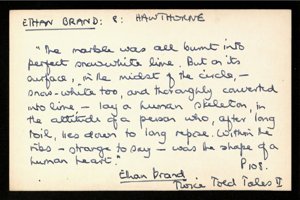 ETHAN BRAND: P: HAWTHORNE
"The marble was all burnt into
perfect, snowwhite lime. But on its
surface, in the midst of the circle, —
snow-white too, and thoroughly converted
into lime — lay a human skeleton, in
the attitude of a person who, after long
toil, lies down to long repose. Within the
ribs — strange to say — was the shape of a
human heart."
P 108.
Ethan Brand
Twice Told Tales II